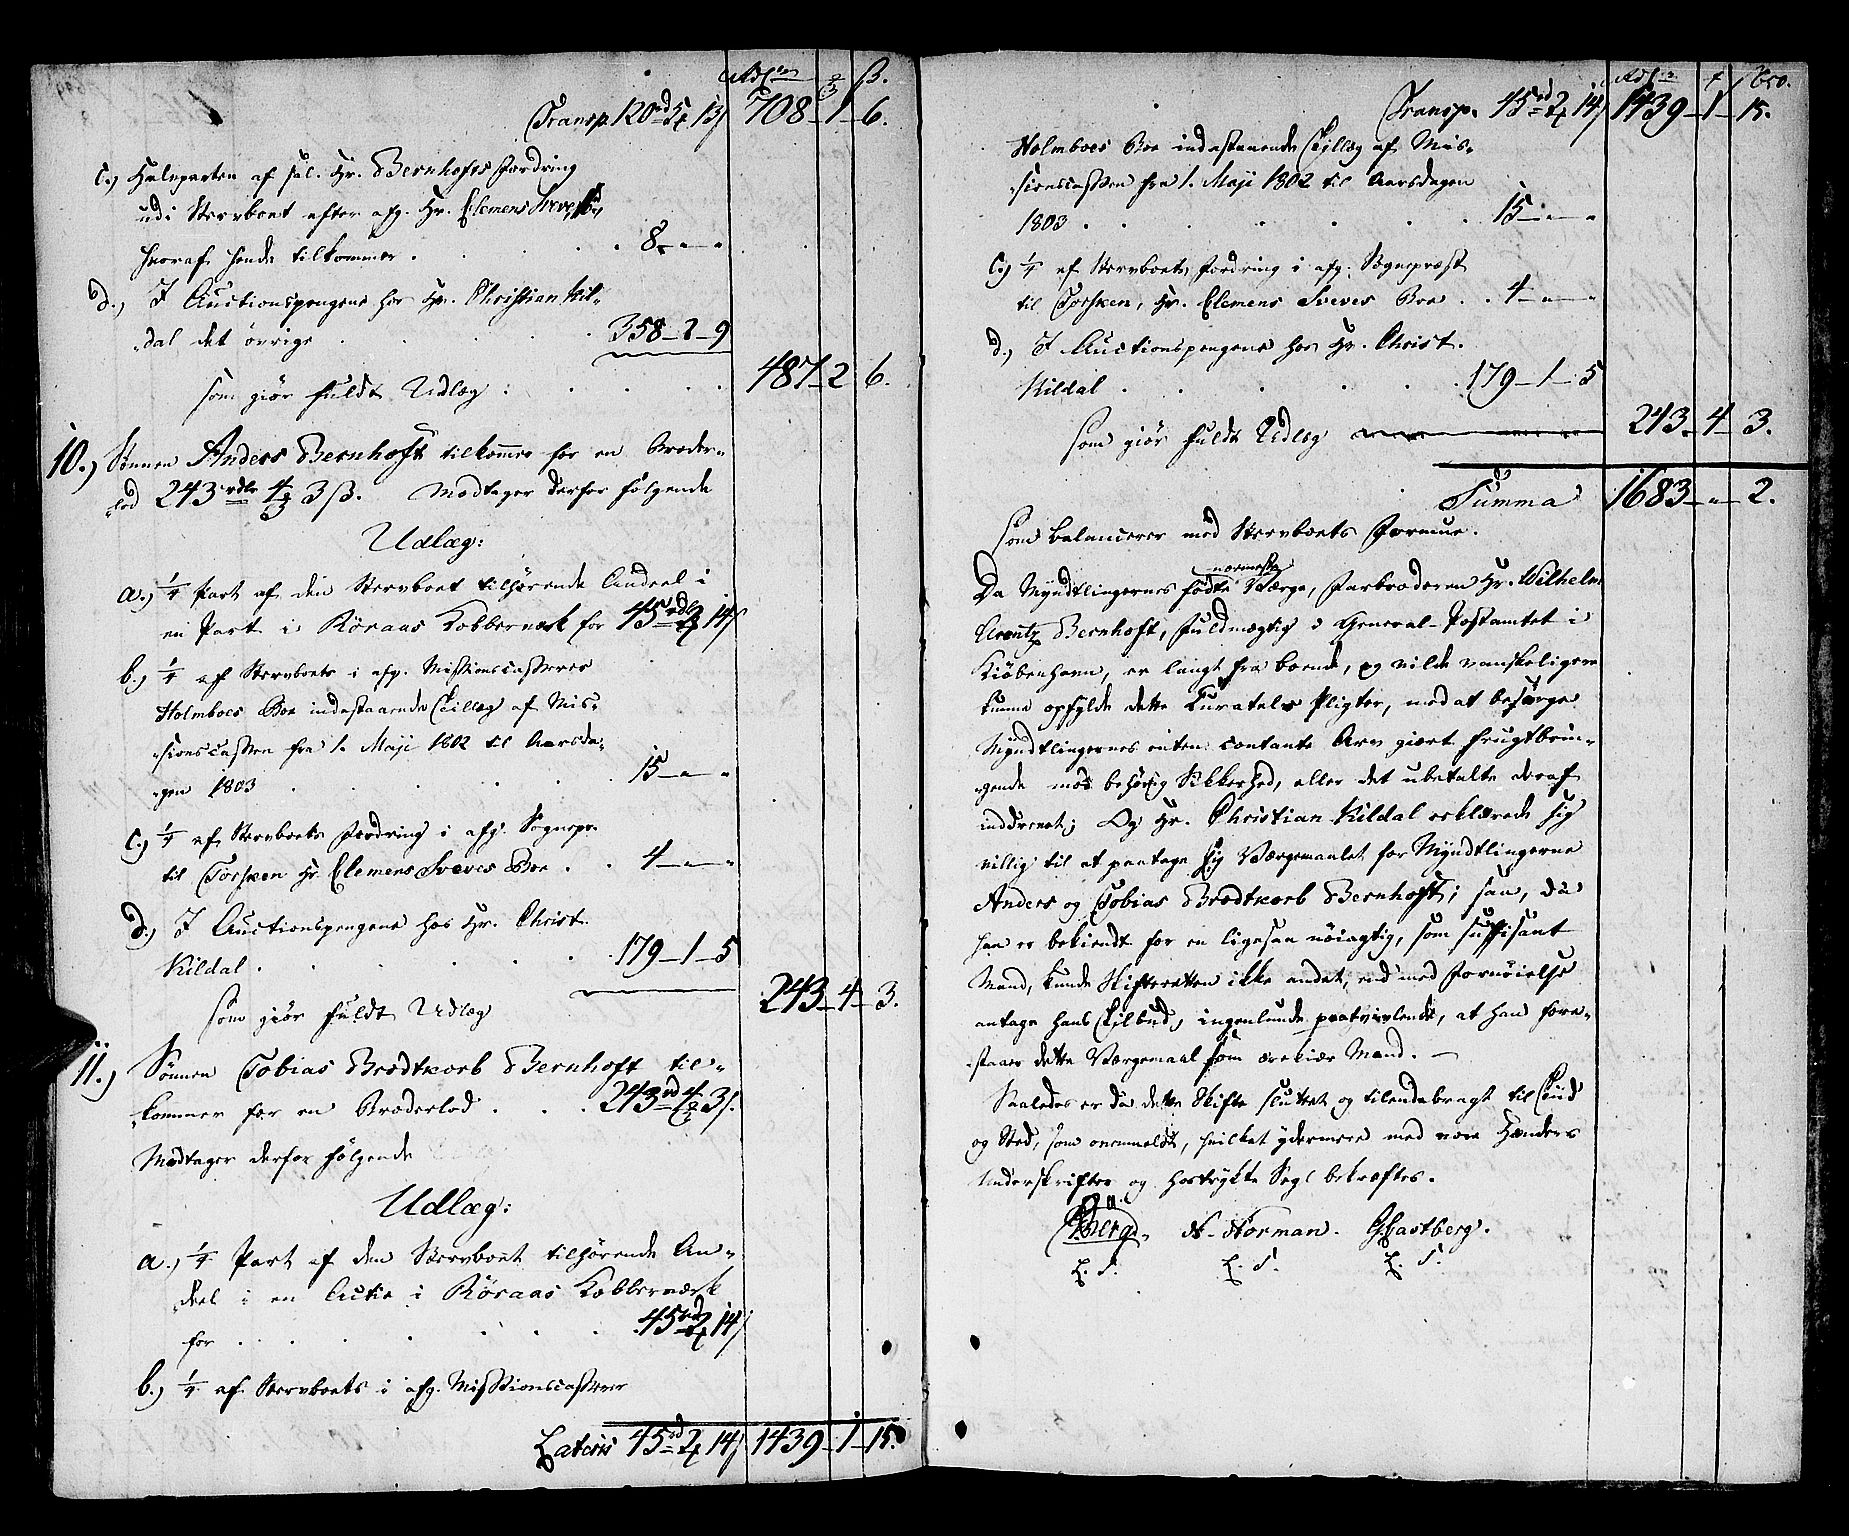 Rdlr ꝝ ß.
Transp. 120 rd 5 ꝝ 13 ß 708 - 1 - 6.
c.) Halvparten af sal. Hr. Bernhofts Fordring
udi Stervboet efter afg. Hr. Clemens Sveve,
hvoraf hende tilkommer . . . 8 - " - "
d.) I Auctionspengene hos Hr. Christian Kil-
dal det övrige . . . 358 - 2 - 9
som giör fuldt Udlæg : . . . 487 - 2 - 6.
10.) Sönnen Anders Bernhoft tilkommer for en Broder-
lod 243 rdlr 4 ꝝ 3 ß. Modtager derfor fölgende
Udlæg:
a.) 1/4 Part af den Stervboet tilhörende Andeel i
en Part i Röraas Kobberverk for 45 rdl 2 ꝝ 14 ß
b.) 1/4 af Stervboets i afg. Missionscasserer
Holmboes Boe indestaaende Tillæg af Mis-
sionscassen fra 1. Maji 1802 til Aarsda-
gen 1803 . . . 15 - " - "
c.) 1/4 af Stervboets Fordring i afg. Sognepr.
til Torsken Hr. Clemens Sveves Boe . . 4 - " - "
d.) I Auctionspengene hos Hr. Christ.
Kildal . . . 179 - 1 - 5
som giör fuldt Udlæg 243 - 4 - 3.
11.) Sönnen Tobias Brodtkorb Bernhoft til-
kommer for en Broderlod . . . 243 rd 4 ꝝ 3 ß.
Modtager derfor fölgende
Udlæg:
a.) 1/4 Part af den Stervboet tilhörende An-
deel i en Actie i Röraas Kobberværk
for . . . 45 rd 2 ꝝ 14 ß
b.) 1/4 af Stervboets i afg. Missionscasserer
Lateris 45 rd 2 ꝝ 14 ß 1439 - 1 - 15.
Rdlr ꝝ ß
Transp. 45 rd 2 ꝝ 14 ß 1439 - 1 - 15.
Holmboes Boe indestaaende Tillæg af Mis-
sionscassen fra 1. Maji 1802 til Aarsdagen
1803 . . . 15 - " - "
c.) 1/4 af Stervboets Fordring i afg. Sognepræst
til Torsken, Hr. Clemens Sveves Boe . . 4 - " - "
d.) I Auctionspengene hos Hr. Christ.
Kildal . . . 179 - 1 - 5
som giör fuldt Udlæg 243 - 4 - 3.
Summa 1683 - " - 2.
som balancerer med Stervboets Formue.
Da Myndtlingernes födte nærmeste Værge, Farbroderen Hr. Wilhelm
Bernhoft, Fuldmægtig i General-Postamtet i
Kiöbenhavn, er langt fra boende, og vilde vanskeligere
kunne opfylde dette Curatels Pligter, med at besörge
Myndtlingernes enten contante Arv giort frugtbrin-
gende mod behörig Sikkerhed, eller det ubetalte deraf
inddrevet; Og Hr. Christian Kildal erklærede sig
villig til at paatage sig Værgemaalet for Myndtlingerne
Anders og Tobias Brodtkorb Bernhoft; saa, da
han er bekiendt for en ligesaa nöiagtig, som suffisant
Mand, kunde Skifteretten ikke andet, end med Fornöielse
antage hans Tilbud, ingenlunde paatvivlende, at han fore-
staaer dette Værgemaal som ærekiær Mand. —
Saaledes er da dette Skifte sluttet og tilendebragt til Tiid
og Sted, som ovenmeldt, hvilket ydermere med vore Hænders
Underskrifter og hostrykte Segl bekræftes.
Berg. N. Norman. G. Hastberg.
L. S. L. S. L. S.